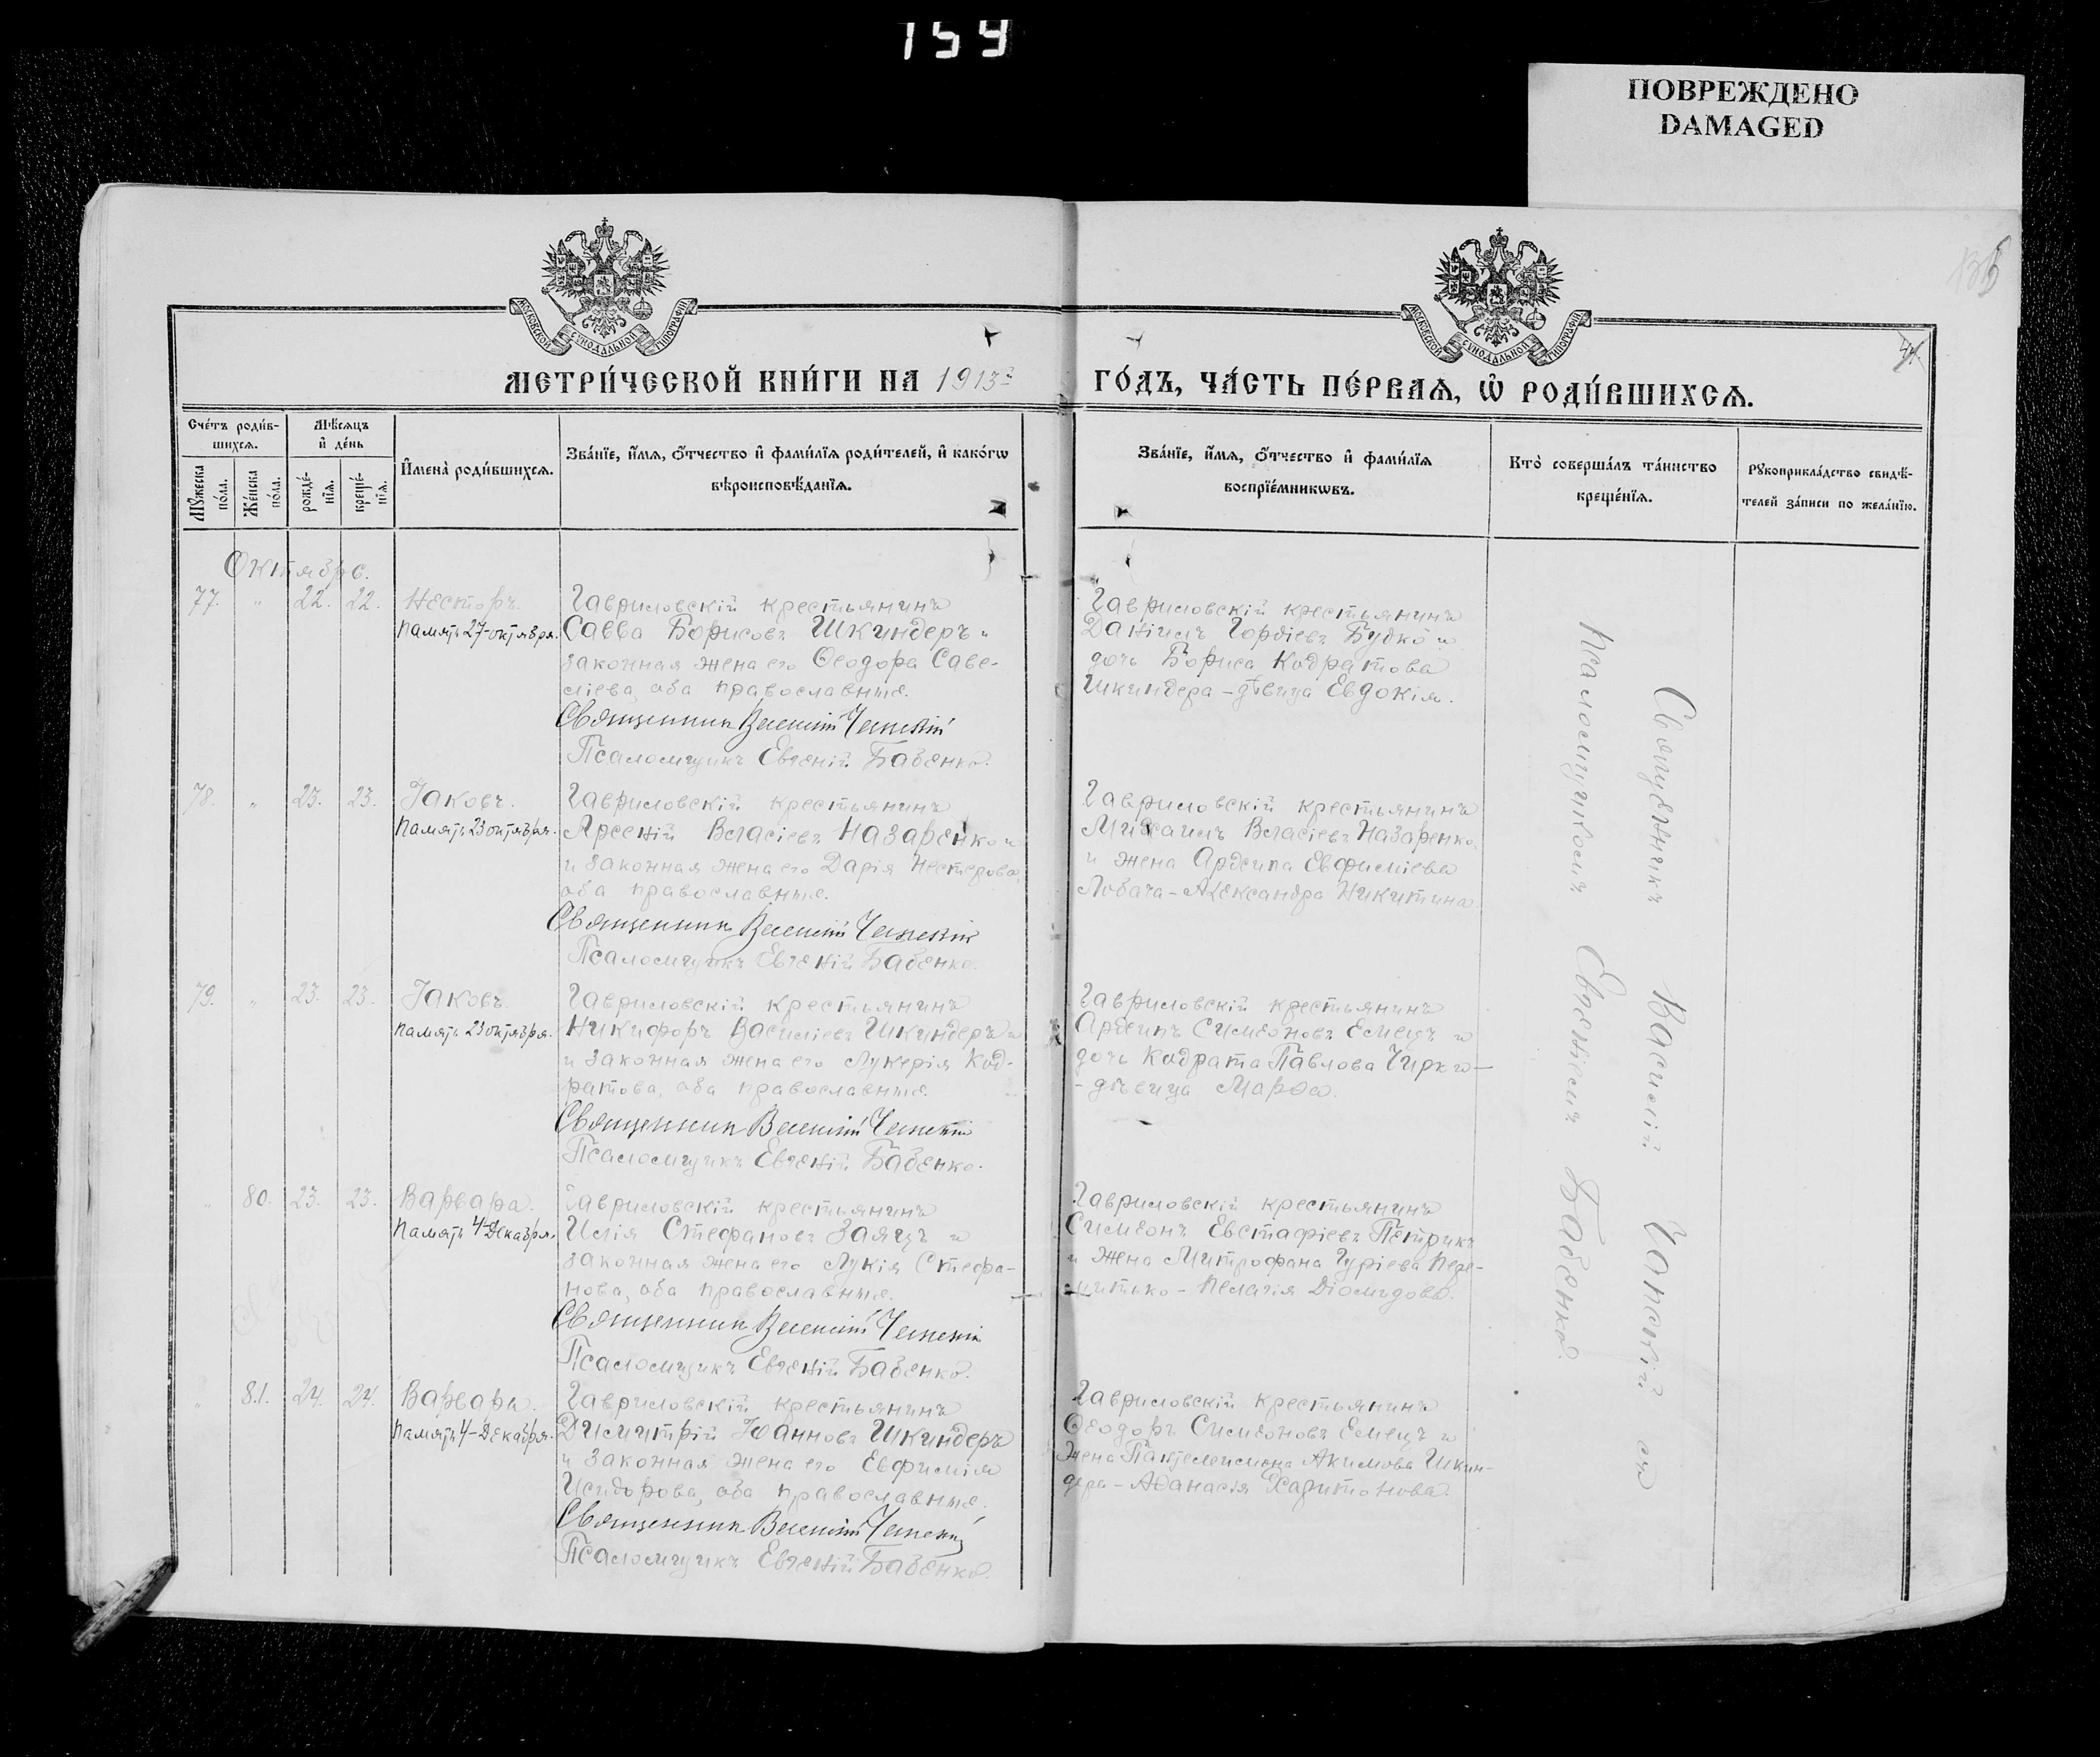 159
ПОВРЕЖДЕНО
DAMAGED
МОСКОВСКОЙ СУНОДАЛЬНОЙ ТИПОГРАФІИ
МОСКОВСКОЙ СУНОДАЛЬНОЙ ТИПОГРАФІИ
МЕТРИ́ЧЕСКОЙ КНИ́ГИ НА 1913й ГО́ДЪ, ЧА́СТЬ ПЕ́РВАѦ, Ѡ҆ РОДИ́ВШИХСѦ.
Сче́тъ роди́в-
шихсѧ.
Мѣ́сѧцъ
и҆ де́нь
Мꙋ́жеска по́ла.
Же́нска по́ла.
рожде́-
нїѧ.
креще́-
нїѧ.
И҆мена̀ роди́вшихсѧ.
Зва́нїе, и҆́мѧ, ѻ҆́тчество и҆ фами́лїѧ роди́телей, и҆ како́гѡ
вѣроисповѣ́данїѧ.
Зва́нїе, и҆́мѧ, ѻ҆́тчество и҆ фами́лїѧ
воспрїе́мникѡвъ.
Кто̀ соверша́лъ та́инство
креще́нїѧ.
Рꙋкоприкла́дство свидѣ́-
телей за́писи по жела́нїю.
Октябрь.
77. " 22. 22. Несторъ.
память 27-октября.
Гавриловскій крестьянинъ
Савва Борисовъ Шкиндеръ и
законная жена его Ѳеодора Саве-
ліева, оба православные.
Священникъ Василій Чапскій
Псаломщикъ Евгеній Бабенко.
Гавриловскій крестьянинъ
Даніилъ Гордіевъ Будко и
дочь Бориса Кодратова
Шкиндера - дѣвица Евдокія.
78. " 23. 23. Іаковъ.
память 23 октября.
Гавриловскій крестьянинъ
Арсеній Власіевъ Назаренко и
и законная жена его Дарія Нестерова,
оба православные.
Священникъ Василій Чапскій
Псаломщикъ Евгеній Бабенко.
Гавриловскій крестьянинъ
Михаилъ Власіевъ Назаренко
и жена Архипа Евфиміева
Лобача - Александра Никитина.
79. " 23. 23. Іаковъ.
память 23 октября.
Гавриловскій крестьянинъ
Никифоръ Василіевъ Шкиндеръ и
и законная жена его Лукерія Код-
ратова, оба православные.
Священникъ Василій Чапскій
Псаломщикъ Евгеній Бабенко.
Гавриловскій крестьянинъ
Архипъ Симеоновъ Емецъ и
дочь Кодрата Павлова Чирка -
- дѣвица Марѳа.
" 80. 23. 23. Варвара.
память 4-Декабря.
Гавриловскій крестьянинъ
Илія Стефановъ Заяцъ и
законная жена его Лукія Стефа-
нова, оба православные.
Священникъ Василій Чапскій
Псаломщикъ Евгеній Бабенко.
Гавриловскій крестьянинъ
Симеонъ Евстафіевъ Петрикъ
и жена Митрофана Гуріева
Пелагія Діомидова.
" 81. 24. 24. Варвара.
память 4-Декабря.
Гавриловскій крестьянинъ
Димитрій Іоанновъ Шкиндеръ
и законная жена его Евфимія
Исидорова, оба православные.
Священникъ Василій Чапскій
Псаломщикъ Евгеній Бабенко.
Гавриловскій крестьянинъ
Ѳеодоръ Симеоновъ Емецъ и
жена Пантелеимона Акимова Шкин-
дера - Аѳанасія Харитонова.
Священникъ Василій Чапскій съ
псаломщикомъ Евгеніемъ Бабенко.